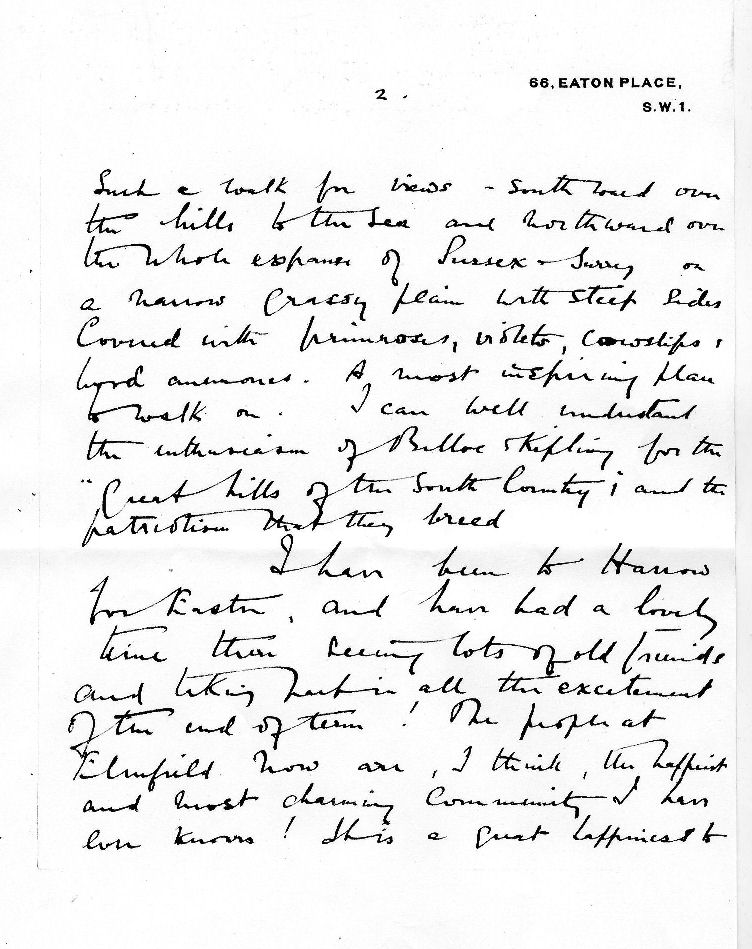 66, EATON PLACE,
S.W.1.
2.
Such a walk for views - southward over
the hills to the sea and northward over
the whole expanse of Sussex & Surrey on
a narrow grassy plain with steep sides
Covered with primroses, violets, cowslips &
anemones. A most inspiring place
to walk on. I can well understand
the enthusiasm of Belloc & Kipling for the
"Great hills of the South Country"; and the
patriotism that they breed
I have been to Harrow
for Easter, and have had a lovely
time there seeing lots of old friends
and taking part in all the excitement
of the end of term! The people at
Elmfield now are, I think, the happiest
and most charming Community I have
ever known! It is a great happiness to